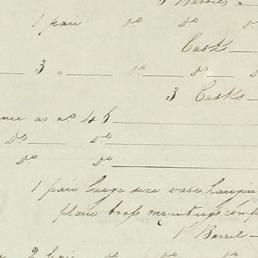 5 Barrels
1 pair do do
Cask
3 " do do
3 Casks
nce as no 45
Do do
do do
1 pair large size vase
plain brass mountings
1 Barrel
2